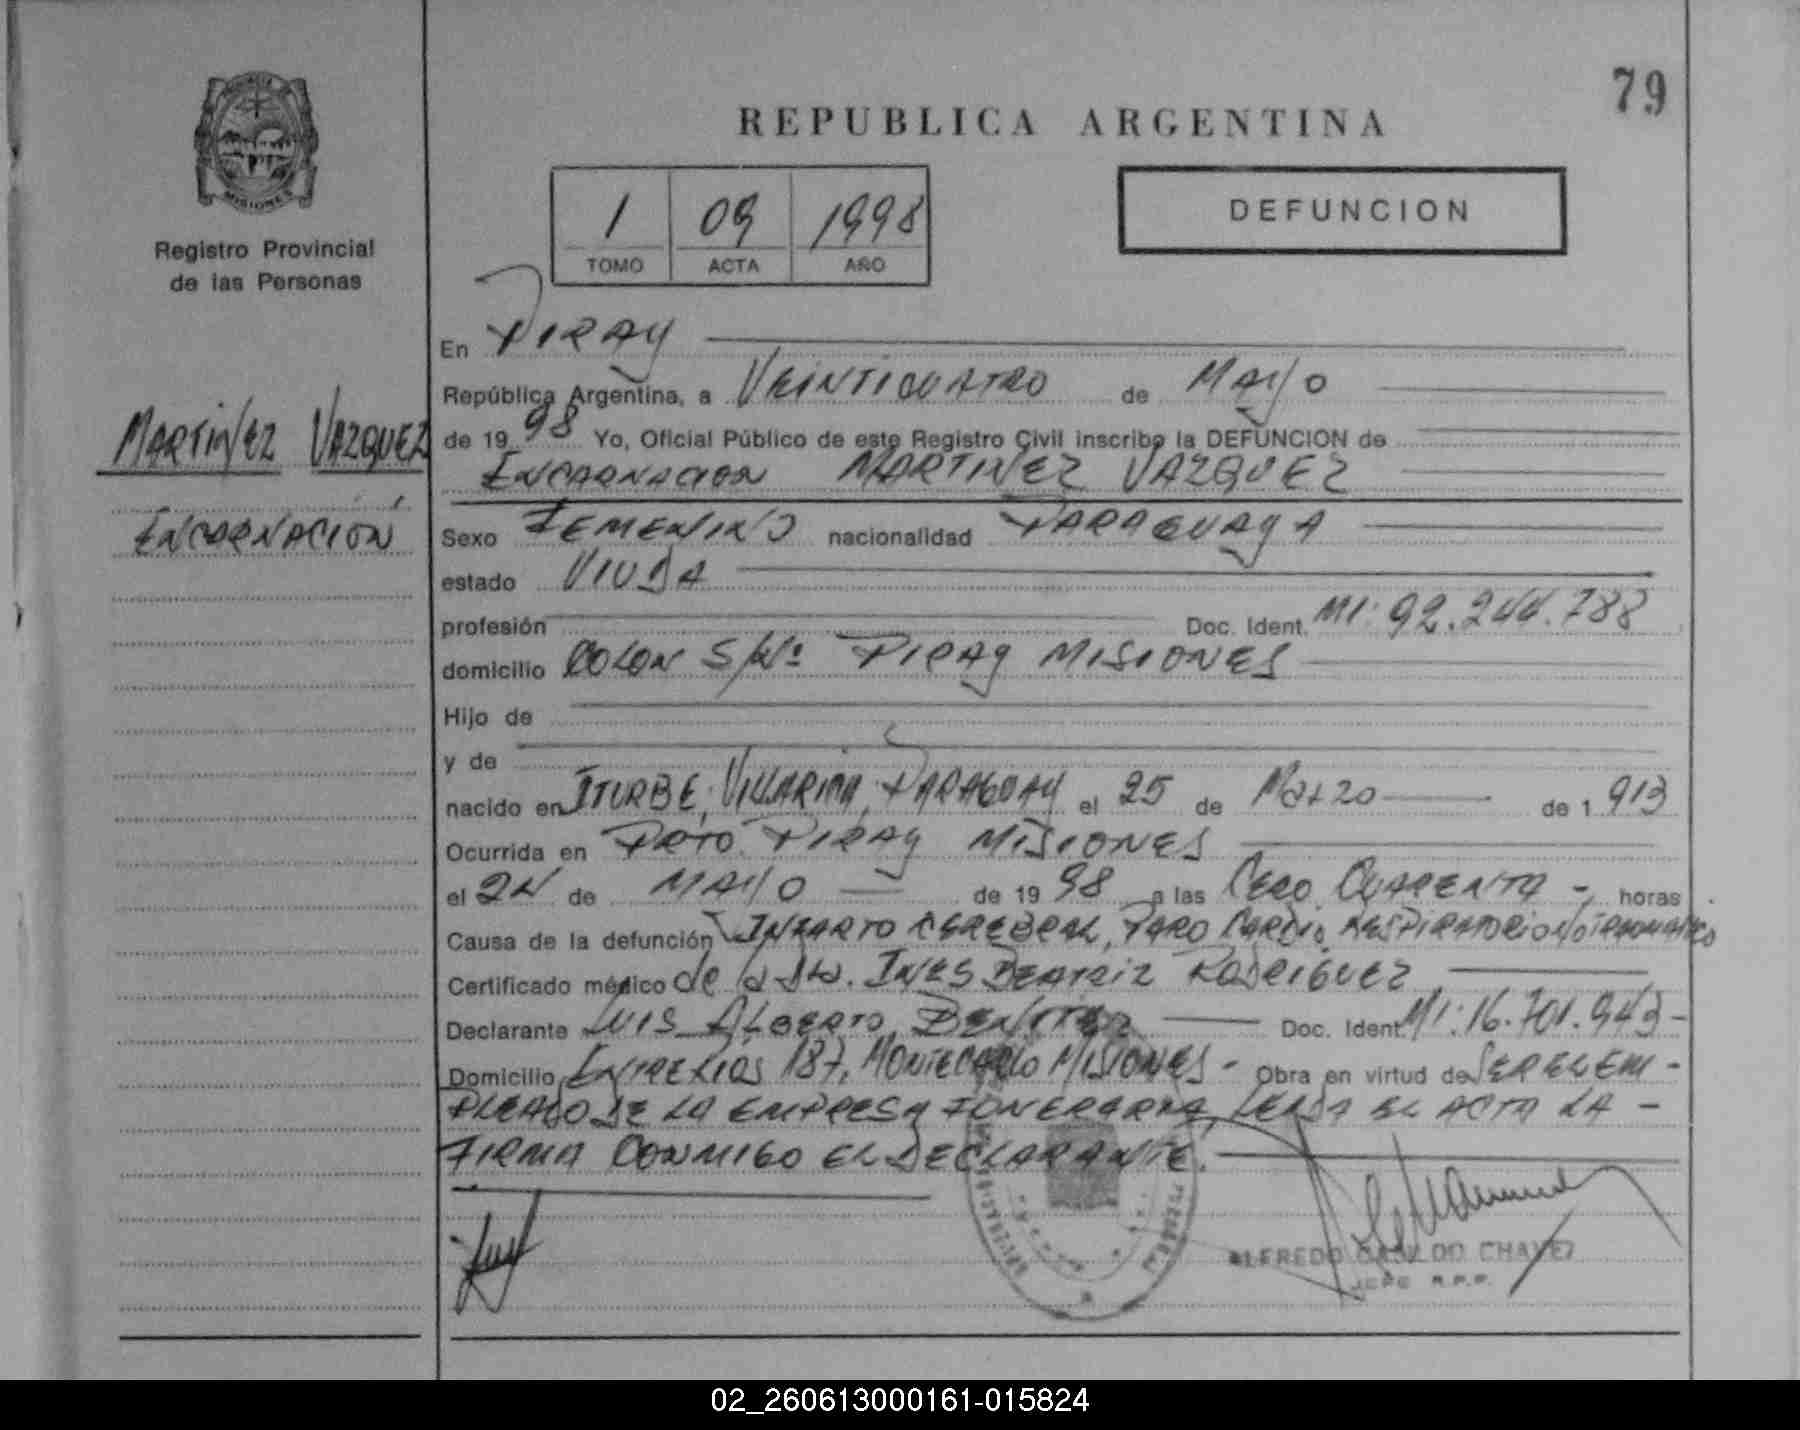 79
REPUBLICA ARGENTINA
1 09 1998
TOMO ACTA AÑO
DEFUNCION
MISIONES
Registro Provincial
de las Personas
MARTINEZ VAZQUEZ
ENCARNACIÓN
En PIRAY
República Argentina, a VEINTICUATRO de MAYO
de 1998 Yo, Oficial Público de este Registro Civil inscribo la DEFUNCION de
ENCARNACION MARTINEZ VAZQUEZ
Sexo FEMENINO nacionalidad PARAGUAYA
estado VIUDA
profesión Doc. Ident. MI: 92.244.788
domicilio COLON S/Nº PIRAY MISIONES
Hijo de
y de
nacido en ITURBE, VILLARICA, PARAGUAY el 25 de Marzo de 1 913
Ocurrida en PRTO. PIRAY MISIONES
el 24 de MAYO de 1998 a las CERO CUARENTA - horas
Causa de la defunción INFARTO CEREBRAL, PARO CARDIO RESPIRATORIO NO TRAUMATICO
Certificado médico de la Dra. INES BEATRIZ RODRIGUEZ
Declarante LUIS ALBERTO BENITEZ Doc. Ident. MI: 16.701.943-
Domicilio ENTRE RIOS 187, MONTECARLO MISIONES - Obra en virtud de SER EL EM-
PLEADO DE LA EMPRESA FUNERARIA, LEIDA EL ACTA LA -
FIRMA CONMIGO EL DECLARANTE.
ALFREDO CHAVEZ
JEFE R.P.P.
02_260613000161-015824